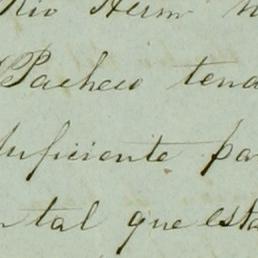 Rio Herm
Pacheco tend
suficiente pa
tal que esta